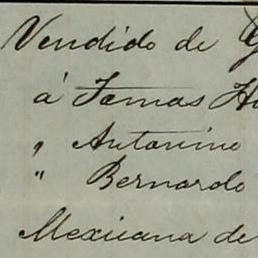 Vendido de
á Tomas
" Antonino
" Bernardo
Mexicana de